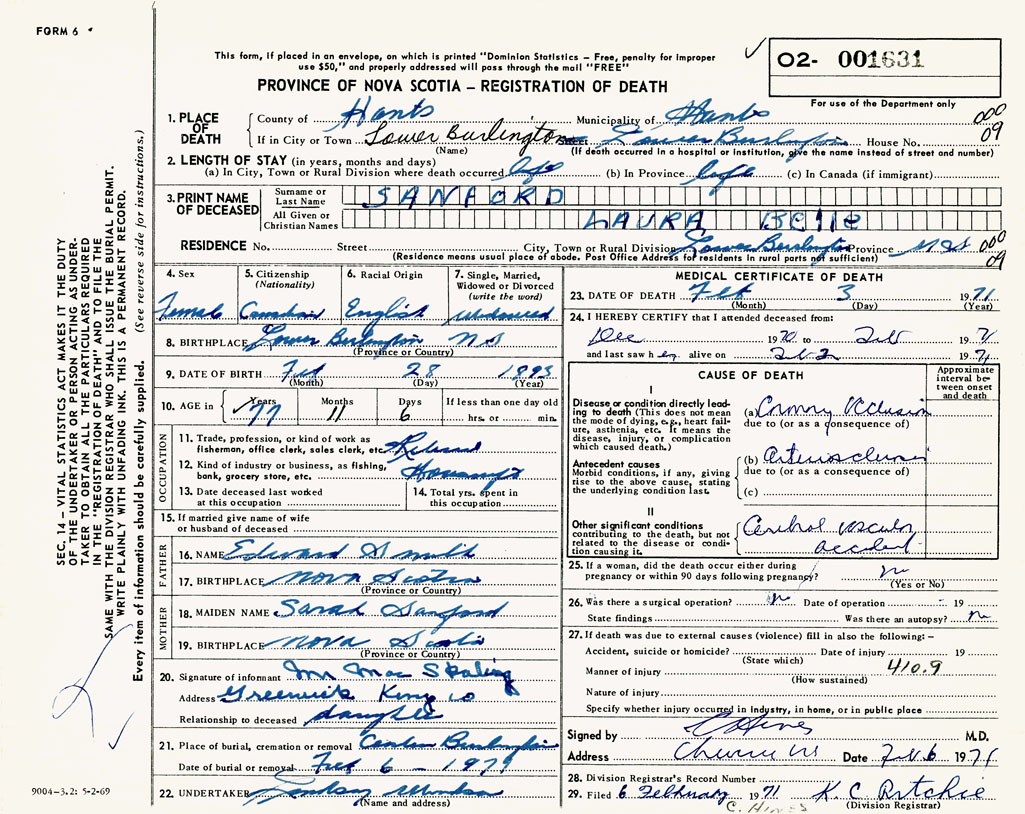 FORM 6
This form, if placed in an envelope, on which is printed "Dominion Statistics – Free, penalty for improper
use $50," and properly addressed will pass through the mail "FREE"
02- 001631
PROVINCE OF NOVA SCOTIA – REGISTRATION OF DEATH
For use of the Department only
1. PLACE OF DEATH
County of Hants Municipality of Hants 000
If in City or Town Lower Burlington Street Lower Burlington House No. 09
(Name) (If death occurred in a hospital or institution, give the name instead of street and number)
2. LENGTH OF STAY (in years, months and days)
(a) In City, Town or Rural Division where death occurred life (b) In Province life (c) In Canada (if immigrant)
3. PRINT NAME OF DECEASED
Surname or Last Name SANFORD
All Given or Christian Names LAURA BElle
RESIDENCE No. Street City, Town or Rural Division Lower Burlington Province N S 000
(Residence means usual place of abode. Post Office Address for residents in rural parts not sufficient) 09
4. Sex Female
5. Citizenship (Nationality) Canadian
6. Racial Origin English
7. Single, Married, Widowed or Divorced (write the word) Widowed
8. BIRTHPLACE Lower Burlington N S
(Province or Country)
9. DATE OF BIRTH Feb 28 1893
(Month) (Day) (Year)
10. AGE in Years 77 Months 11 Days 6 If less than one day old
hrs. or min.
OCCUPATION
11. Trade, profession, or kind of work as
fisherman, office clerk, sales clerk, etc. Retired
12. Kind of industry or business, as fishing,
bank, grocery store, etc.
13. Date deceased last worked
at this occupation
14. Total yrs. spent in
this occupation
15. If married give name of wife
or husband of deceased
FATHER
16. NAME Edward Smith
17. BIRTHPLACE Nova Scotia
(Province or Country)
MOTHER
18. MAIDEN NAME Sarah Sanford
19. BIRTHPLACE Nova Scotia
(Province or Country)
20. Signature of informant Mr Mac Skaling
Address Greenwich Kings Co
Relationship to deceased daughter
21. Place of burial, cremation or removal Burlington
Date of burial or removal Feb 6 – 1971
22. UNDERTAKER Windsor
(Name and address)
MEDICAL CERTIFICATE OF DEATH
23. DATE OF DEATH Feb 3 1971
(Month) (Day) (Year)
24. I HEREBY CERTIFY that I attended deceased from:
Dec 1970 to Feb 1971
and last saw h er alive on Feb 2 1971
CAUSE OF DEATH
Approximate interval between onset and death
I
Disease or condition directly leading
to death (This does not mean
the mode of dying, e.g., heart failure,
asthenia, etc. It means the
disease, injury, or complication
which caused death.)
(a) Coronary Occlusion
due to (or as a consequence of)
Antecedent causes
Morbid conditions, if any, giving
rise to the above cause, stating
the underlying condition last.
(b) Arteriosclerosis
due to (or as a consequence of)
(c)
II
Other significant conditions
contributing to the death, but not
related to the disease or condition
causing it.
Cerebral vascular
accident
25. If a woman, did the death occur either during
pregnancy or within 90 days following pregnancy? no
(Yes or No)
26. Was there a surgical operation? no Date of operation - 19
State findings Was there an autopsy? no
27. If death was due to external causes (violence) fill in also the following: –
Accident, suicide or homicide? Date of injury 19
(State which)
Manner of injury 410.9
(How sustained)
Nature of injury
Specify whether injury occurred in industry, in home, or in public place
Signed by C Hines M.D.
Address Date Feb 6 1971
28. Division Registrar's Record Number
29. Filed 6 February 1971 K. C. Ritchie
C. HINES (Division Registrar)
SEC. 14 – VITAL STATISTICS ACT MAKES IT THE DUTY
OF THE UNDERTAKER OR PERSON ACTING AS UNDERTAKER
TO OBTAIN ALL THE PARTICULARS REQUIRED
IN THE "REGISTRATION OF DEATH" AND TO FILE THE
SAME WITH THE DIVISION REGISTRAR WHO SHALL ISSUE THE BURIAL PERMIT.
WRITE PLAINLY WITH UNFADING INK. THIS IS A PERMANENT RECORD.
Every item of information should be carefully supplied. (See reverse side for instructions.)
9004-3.2: 5-2-69